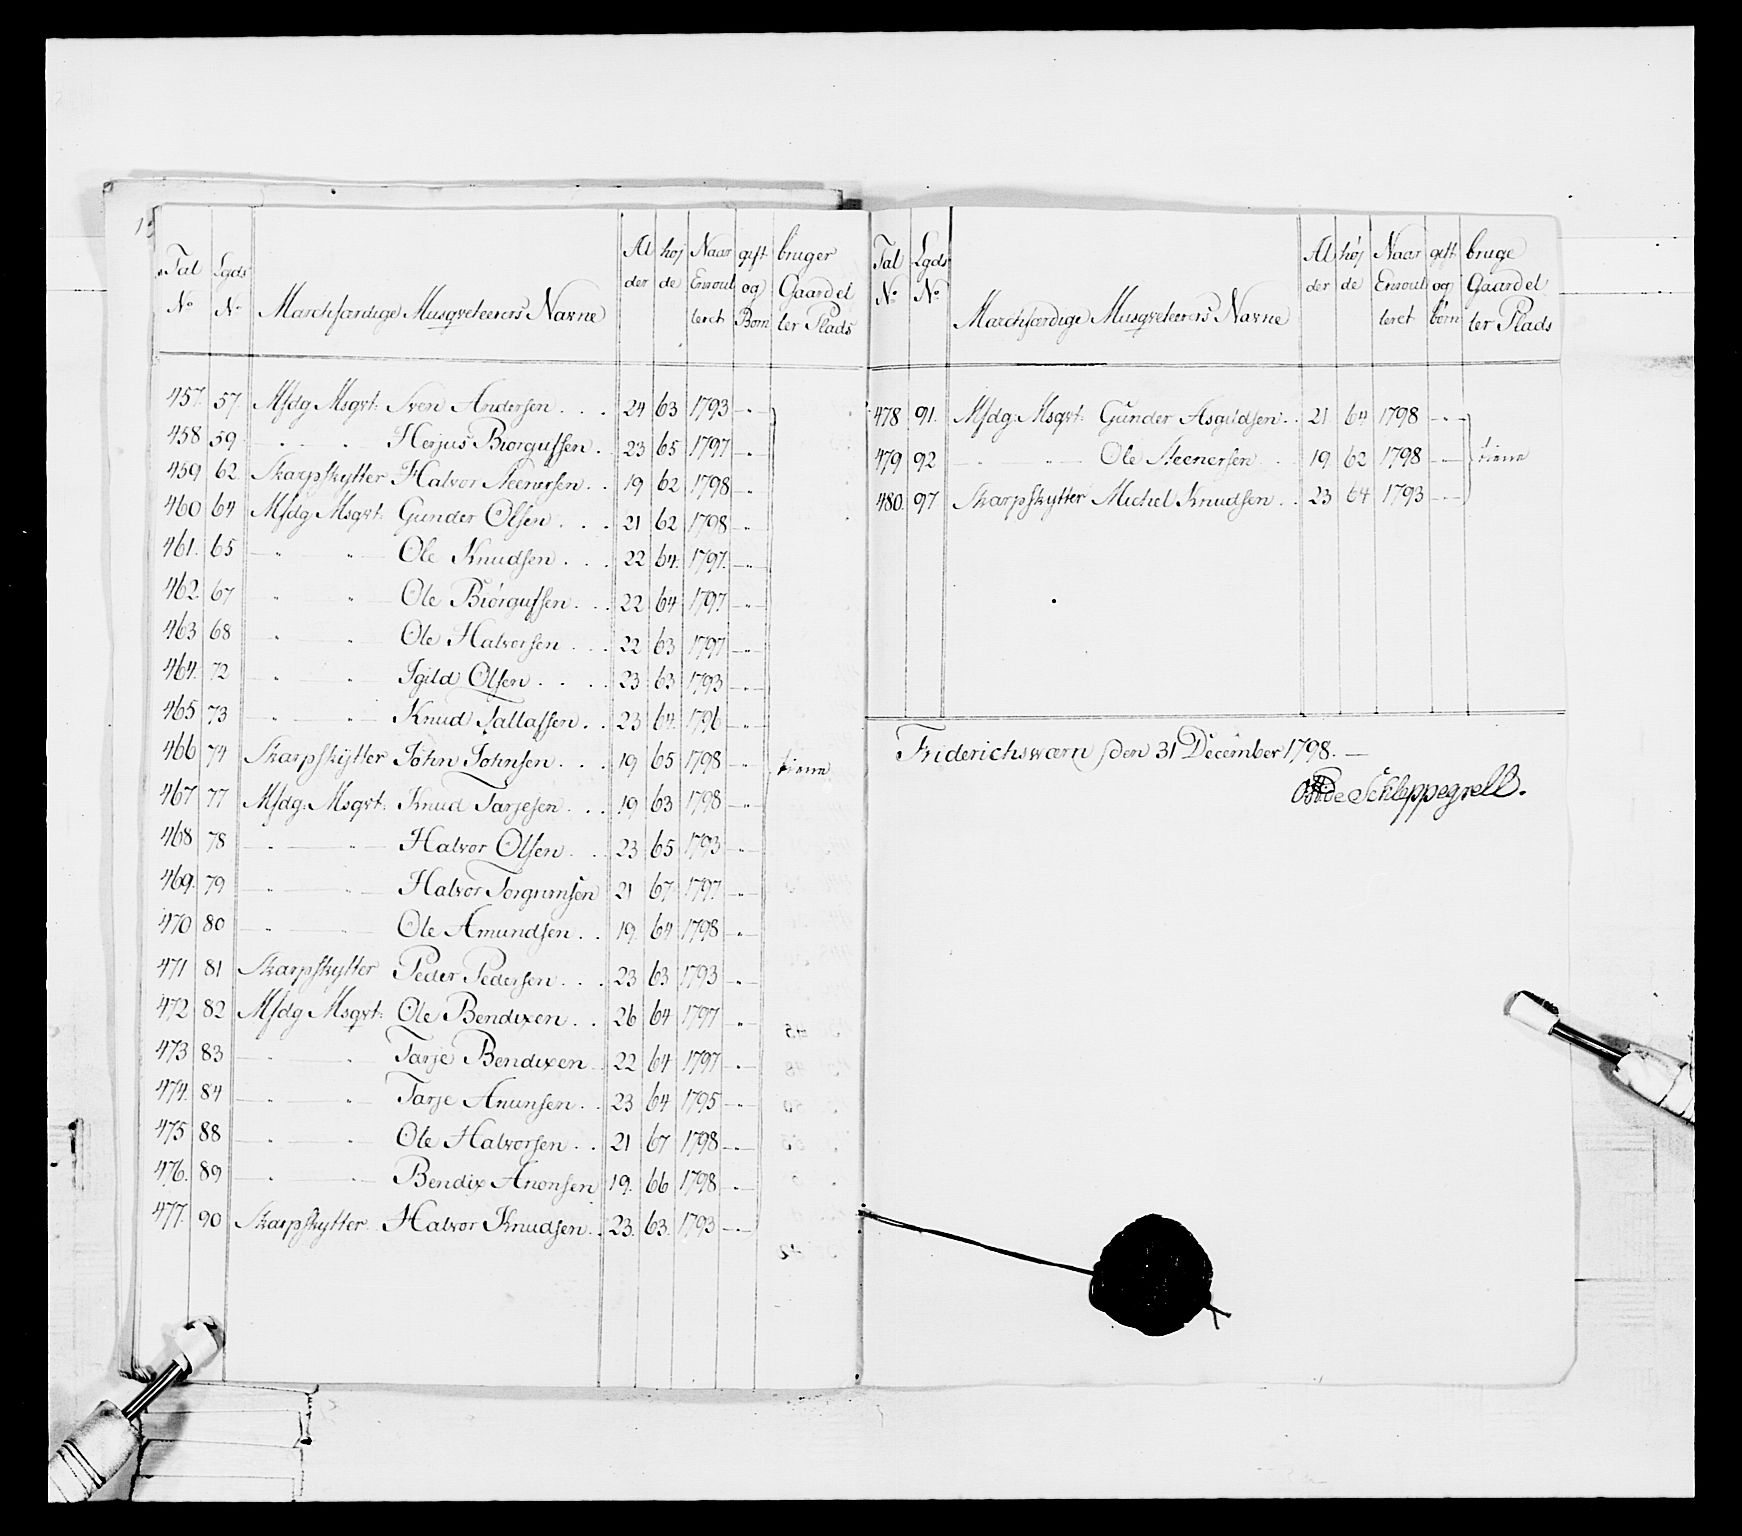 Tal No | Lgds No | Marchfærdige Musqveteerers Navne | Al der | høj de | Naar Enroul leret | gift og Børn | bruger Gaard el ler Plads
457. 57. Mfdg Msqvt: Sven Andersen . . . 24 63 1793 — " —
458 59. " " Herjus Biørgufsen . 23 65 1797 — " —
459 62. Skarpskytter Halvor Steenersen . . 19 62 1798 — " —
460 64 Mfdg Msqvt: Gunder Olsen . . . 21 62 1798 — " —
461. 65 — " " — Ole Knudsen . . . 22 64. 1797. — " —
462. 67 " " — Ole Biørgufsen . . . 22 64 1797 — " —
463 68 " " Ole Halvorsen . . . 22 63 1797 — " —
464. 72 " " Igild Olsen . . . 23 63 1793 — " —
465 73 — " " — Knud Tallafsen . . 23 64. 1796 — " —
466 74 Skarpskytter John Johnsen . . . 19 65 1798 — " — tiener
467 77 Mfdg: Msqvt: Knud Tarjesen . . . 19 63 1798 — " —
468 78 — " " — Halvor Olsen . . . 23 65 1793 — " —
469. 79 " " — Halvor Torgrimsen 21 67 1797. — " —
470 80 — " " — Ole Amundsen . . 19. 64 1798 — " —
471 81 Skarpskytter Peder Pedersen . . . 23 63 1793 — " —
472 82 Mfdg Msqvt: Ole Bendixen . . 26 64 1797 — " —
473 83 — " " Tarje Bendixen . 22 64 1797 — " —
474. 84 — " " — Tarje Anunsen . . 23 64 1795 — " —
475 88 — " " — Ole Halvorsen . . 21 67 1798 — " —
476. 89 — " " — Bendix Anonsen 19. 66 1798 — " —
477. 90 Skarpskytter Halvor Knudsen . . 23. 63. 1793 — " —
Tal No | Lgds No | Marchfærdige Musqveteerers Navne | Al der | høj de | Naar Enroul leret | gift og børn | bruge Gaard el ler Plads
478 91. Mfdg: Msqvt: Gunder Asguldsen . . 21. 64 1798 — " —
479 92 — " " — Ole Steenersen . . 19. 62 1798 — " — tiener
480. 97 Skarpskytter Michel Knudsen . . 23 64 1793 — " —
Friderichswærn den 31 December 1798. —
de Schleppegrell.